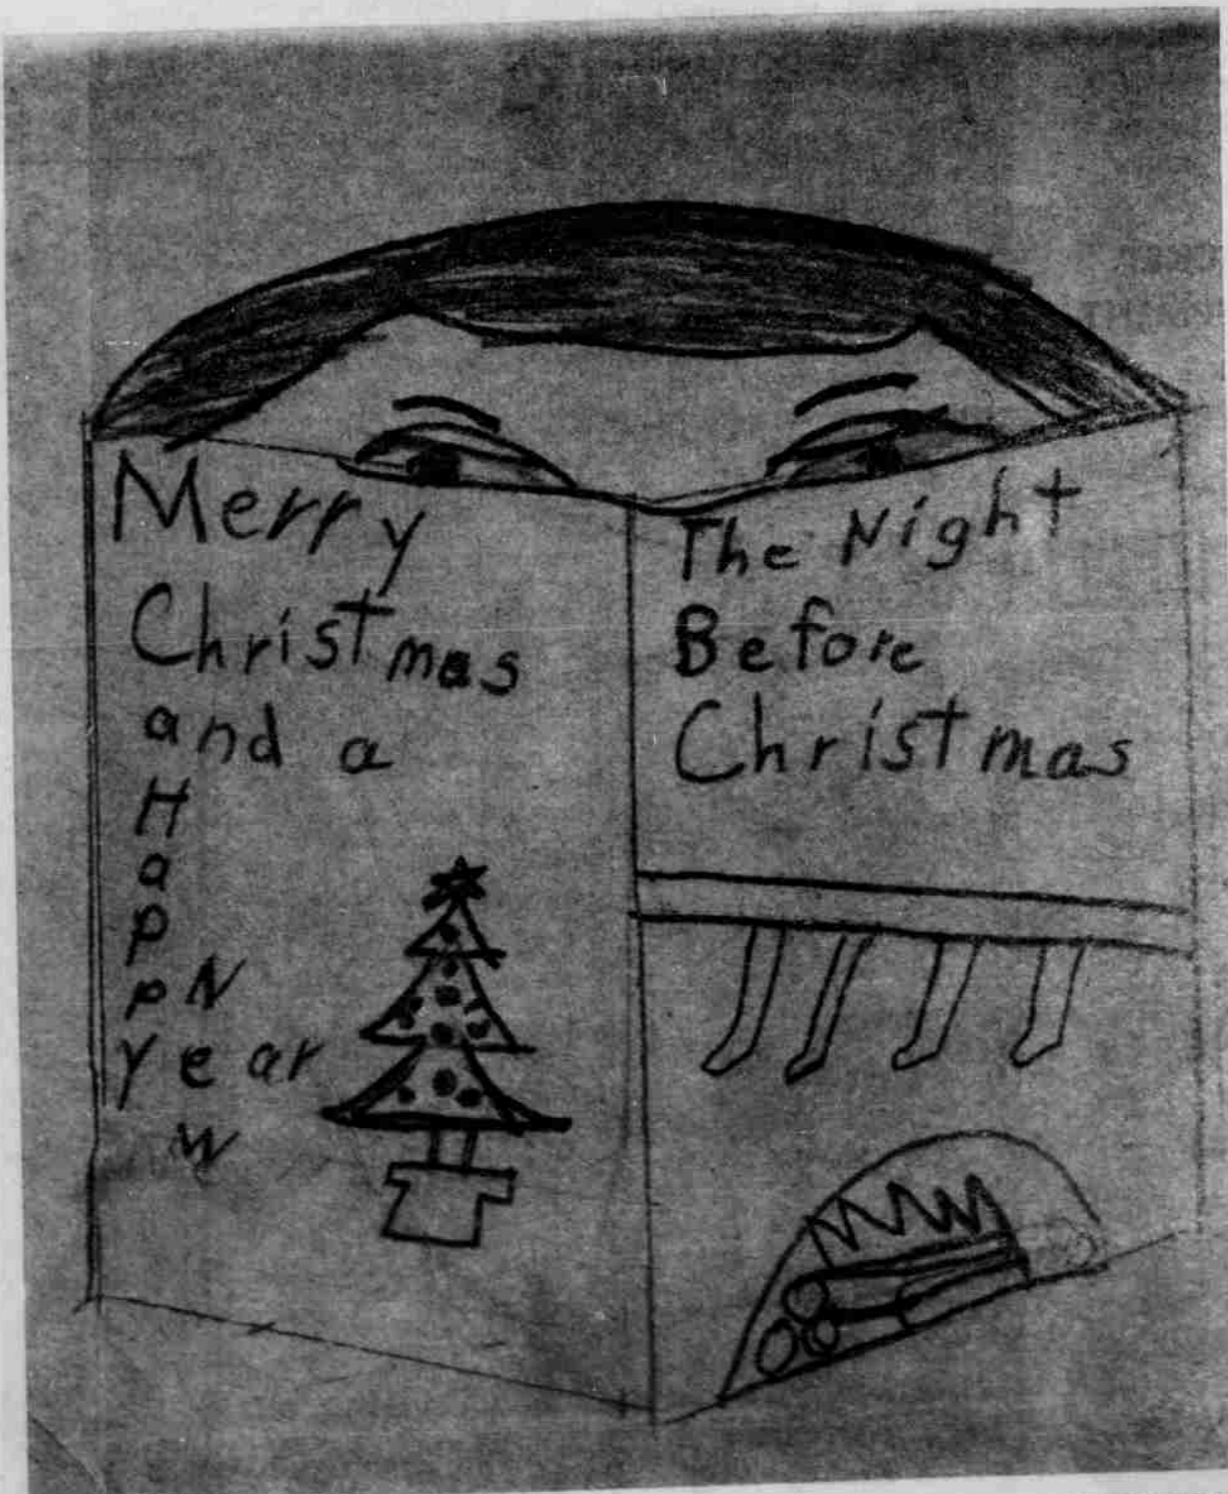 Merry
Christmas
and a
H
a
p
p N
y ear
w
The Night
Before
Christmas